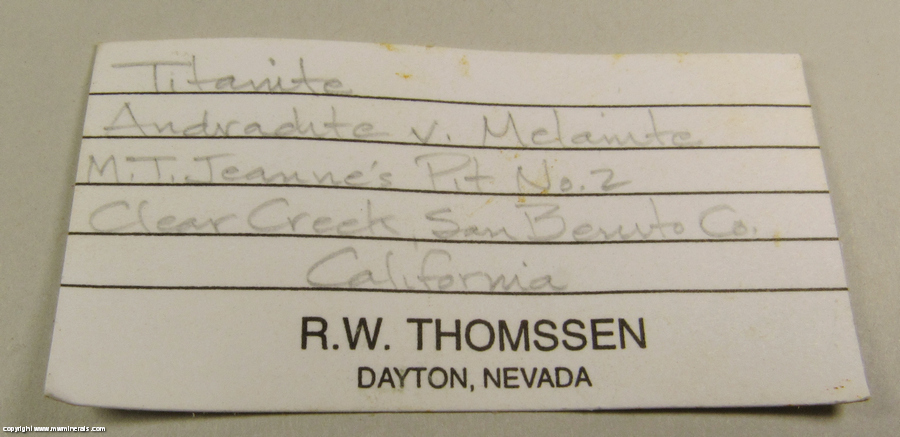 Titanite
Andradite v. Melanite
M.T. Jeanne's Pit No. 2
Clear Creek, San Benito Co.
California
R.W. THOMSSEN
DAYTON, NEVADA
copyright www.mwminerals.com